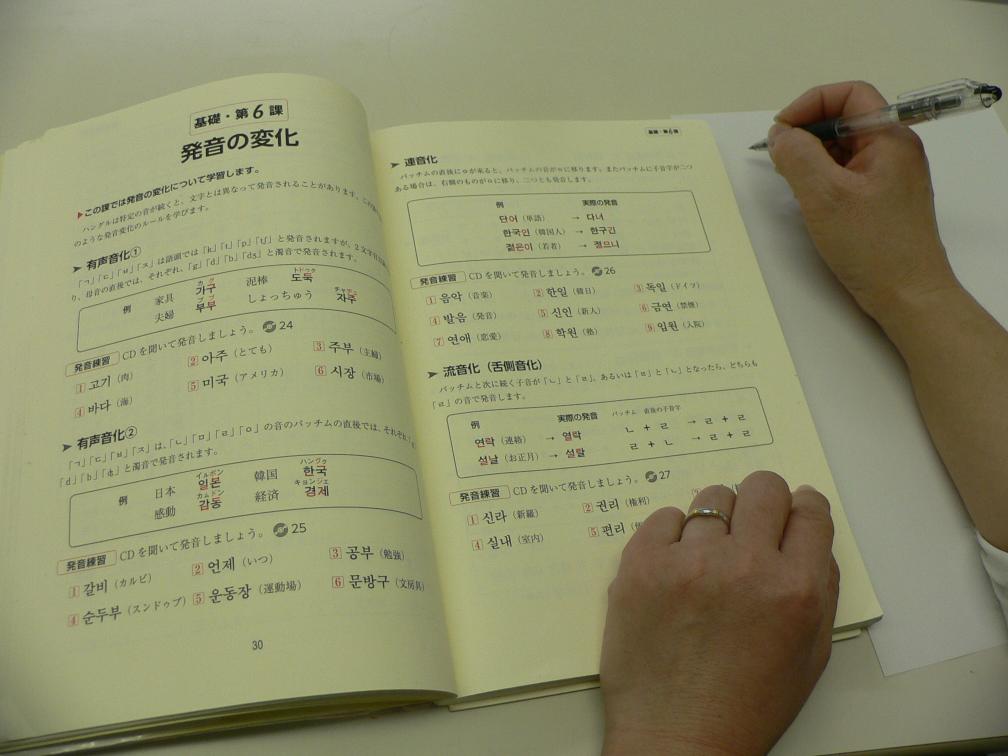 基礎・第6課
発音の変化
▶この課では発音の変化について学習します。
ハングルは特定の音が続くと、文字とは異なって発音されることがあります。この課
のような発音変化のルールを学びます。
➤ 有声音化①
「ㄱ」「ㄷ」「ㅂ」「ㅈ」は語頭では「k」「t」「p」「tʃ」と発音されますが、2文字目以
り、母音の直後では、それぞれ、「g」「d」「b」「dʒ」と濁音で発音されます。
例 家具 가구 泥棒 도둑
夫婦 부부 しょっちゅう 자주
発音練習 CDを聞いて発音しましょう。 24
1 고기（肉） 2 아주（とても） 3 주부（主婦）
4 바다（海） 5 미국（アメリカ） 6 시장（市場）
➤ 有声音化②
「ㄱ」「ㄷ」「ㅂ」「ㅈ」は、「ㄴ」「ㅁ」「ㄹ」「ㅇ」の音のパッチムの直後では、それぞれ
「d」「b」「ʤ」と濁音で発音されます。
イルボン ハングク
例 日本 일본 韓国 한국
カムドン キョンジェ
感動 감동 経済 경제
発音練習 CDを聞いて発音しましょう。 25
1 갈비（カルビ） 2 언제（いつ） 3 공부（勉強）
4 순두부（スンドゥブ） 5 운동장（運動場） 6 문방구（文房具）
30
基礎・第6課
➤ 連音化
パッチムの直後にㅇが来ると、パッチムの音がㅇに移ります。またパッチムに子音字が二つ
ある場合は、右側のものがㅇに移り、二つとも発音します。
例 実際の発音
단어（単語） → 다너
한국인（韓国人） → 한구긴
젊은이（若者） → 절므니
発音練習 CDを聞いて発音しましょう。 26
1 음악（音楽） 2 한일（韓日） 3 독일（ドイツ）
4 발음（発音） 5 신인（新人） 6 금연（禁煙）
7 연애（恋愛） 8 학원（塾） 9 입원（入院）
➤ 流音化（舌側音化）
パッチムと次に続く子音が「ㄴ」と「ㄹ」、あるいは「ㄹ」と「ㄴ」となったら、どちらも
「ㄹ」の音で発音します。
例 実際の発音 パッチム 直後の子音字
연락（連絡） → 열락 ㄴ + ㄹ → ㄹ + ㄹ
설날（お正月） → 설랄 ㄹ + ㄴ → ㄹ + ㄹ
発音練習 CDを聞いて発音しましょう。 27
1 신라（新羅） 2 권리（権利）
4 실내（室内） 5 편리